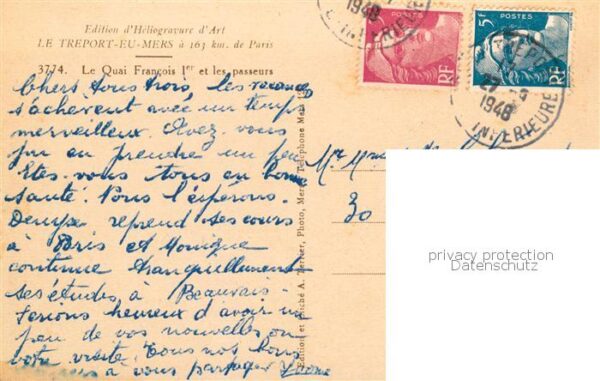 Edition d'Héliogravure d'Art
LE TREPORT-EU-MERS à 163 km. de Paris
3774. Le Quai François Ier et les passeurs
Chers tous trois, les vacances
s'achèvent avec un temps
merveilleux. Avez-vous
pu en prendre un peu
Etes-vous tous en bonne
santé. Nous l'espérons.
Denyse reprend ses cours
à Paris et Monique
continue tranquillement
ses études à Beauvais.
Serions heureux d'avoir un
peu de vos nouvelles ou
votre visite. Tous nos bons
à vous partager Yvonne
Edition et Cliché A. Photo, Mers, Téléphone Mers
Mr
30
POSTES
RF
5F
POSTES
RF
1948
INFERIEURE
27
1948
INFERIEURE
privacy protection
Datenschutz